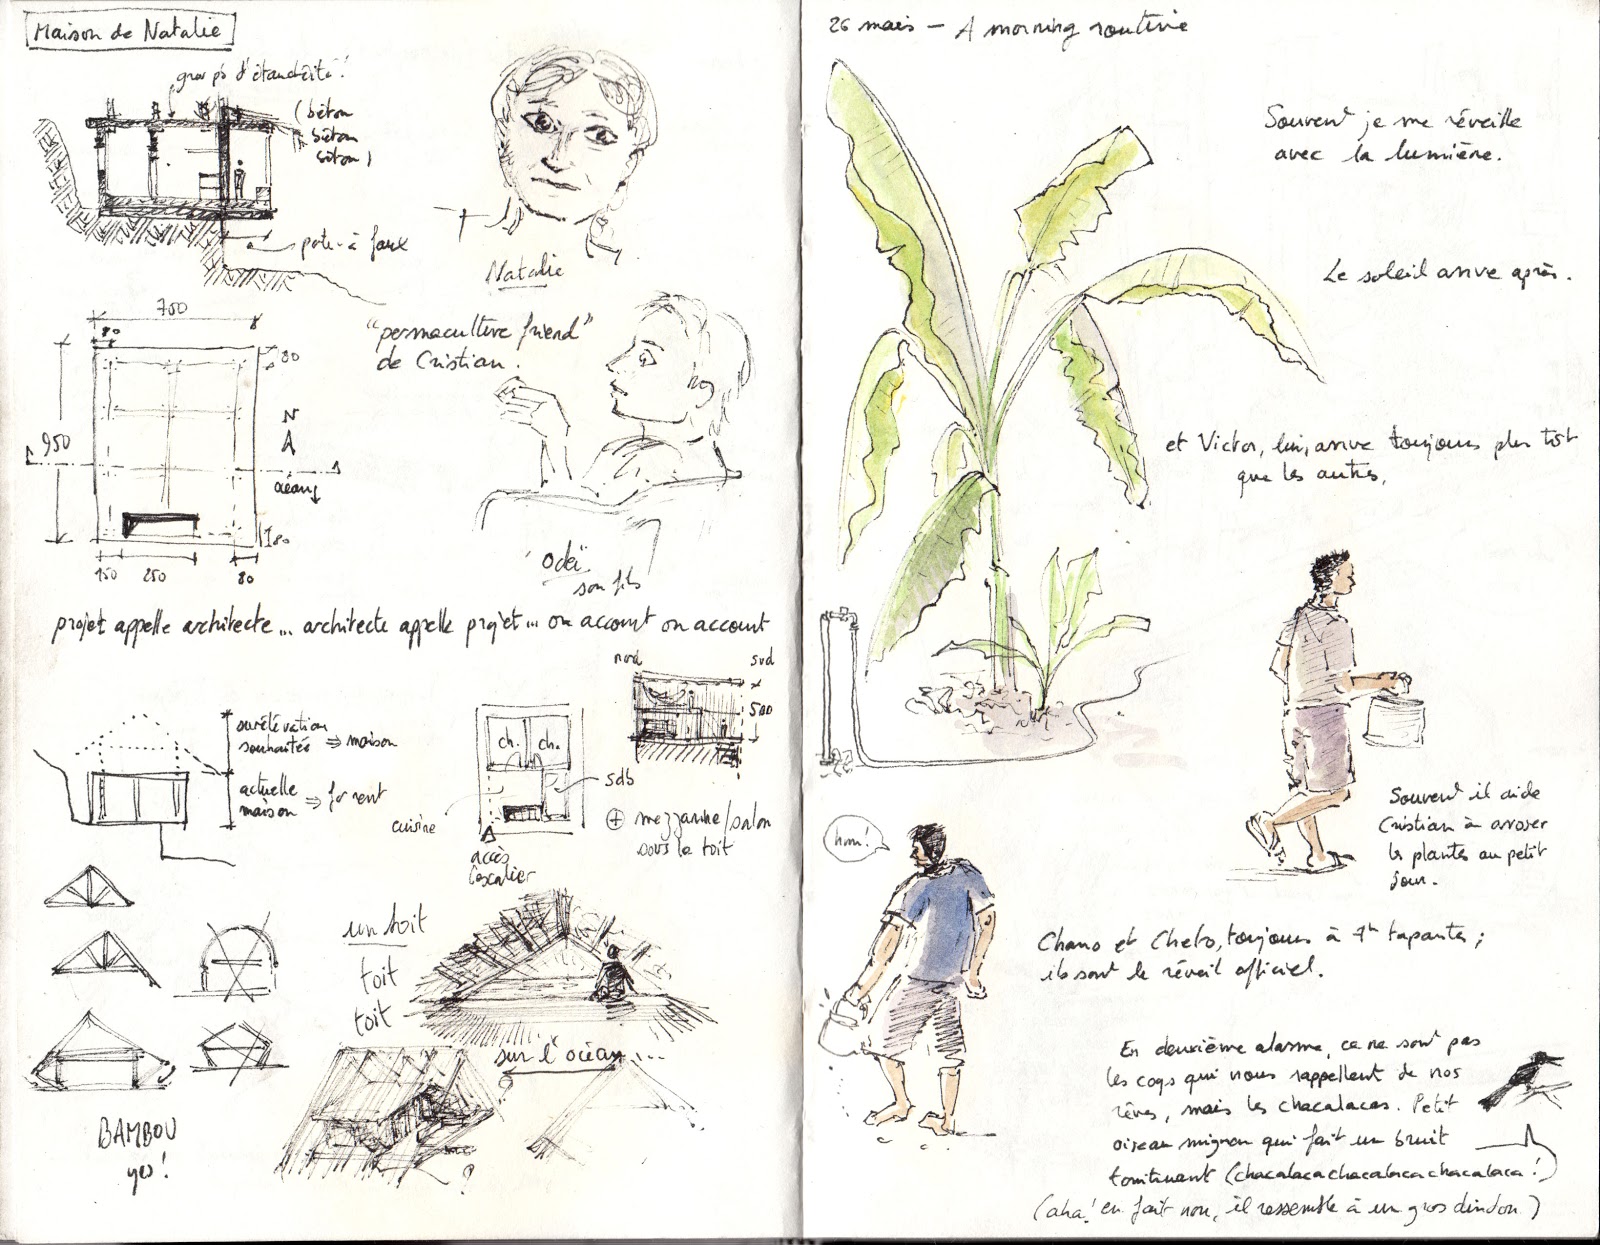 Maison de Natalie
gros pb d'étanchéité!
(béton
béton
béton)
porte-à faux
Natalie
700
80
80
950
N
océan
150
250
80
80
"permaculture friend"
de Cristian.
Odeï
son fils
projet appelle architecte... architecte appelle projet... on accourt on accourt
surélévation
souhaitée ⇒ maison
actuelle
maison ⇒ for rent
ch.
ch.
sdb
cuisine
accès
escalier
nord
sud
500
⊕ mezzanine/salon
sous le toit
un toit
toit
toit
sur l'océan...
?
BAMBOU
yes!
26 mars – A morning routine
Souvent je me réveille
avec la lumière.
Le soleil arrive après.
et Victor, lui, arrive toujours plus tôt
que les autres,
Souvent il aide
Cristian à arroser
les plantes au petit
jour.
hum!
Chano et Cheto, toujours à 7h tapantes;
ils sont le réveil officiel.
En deuxième alarme, ce ne sont pas
les coqs qui nous rappellent de nos
rêves, mais les chacalacas. Petit
oiseau mignon qui fait un bruit
tonitruant (chacalacachacalacachacalaca!)
(aha! en fait non, il ressemble à un gros dindon)